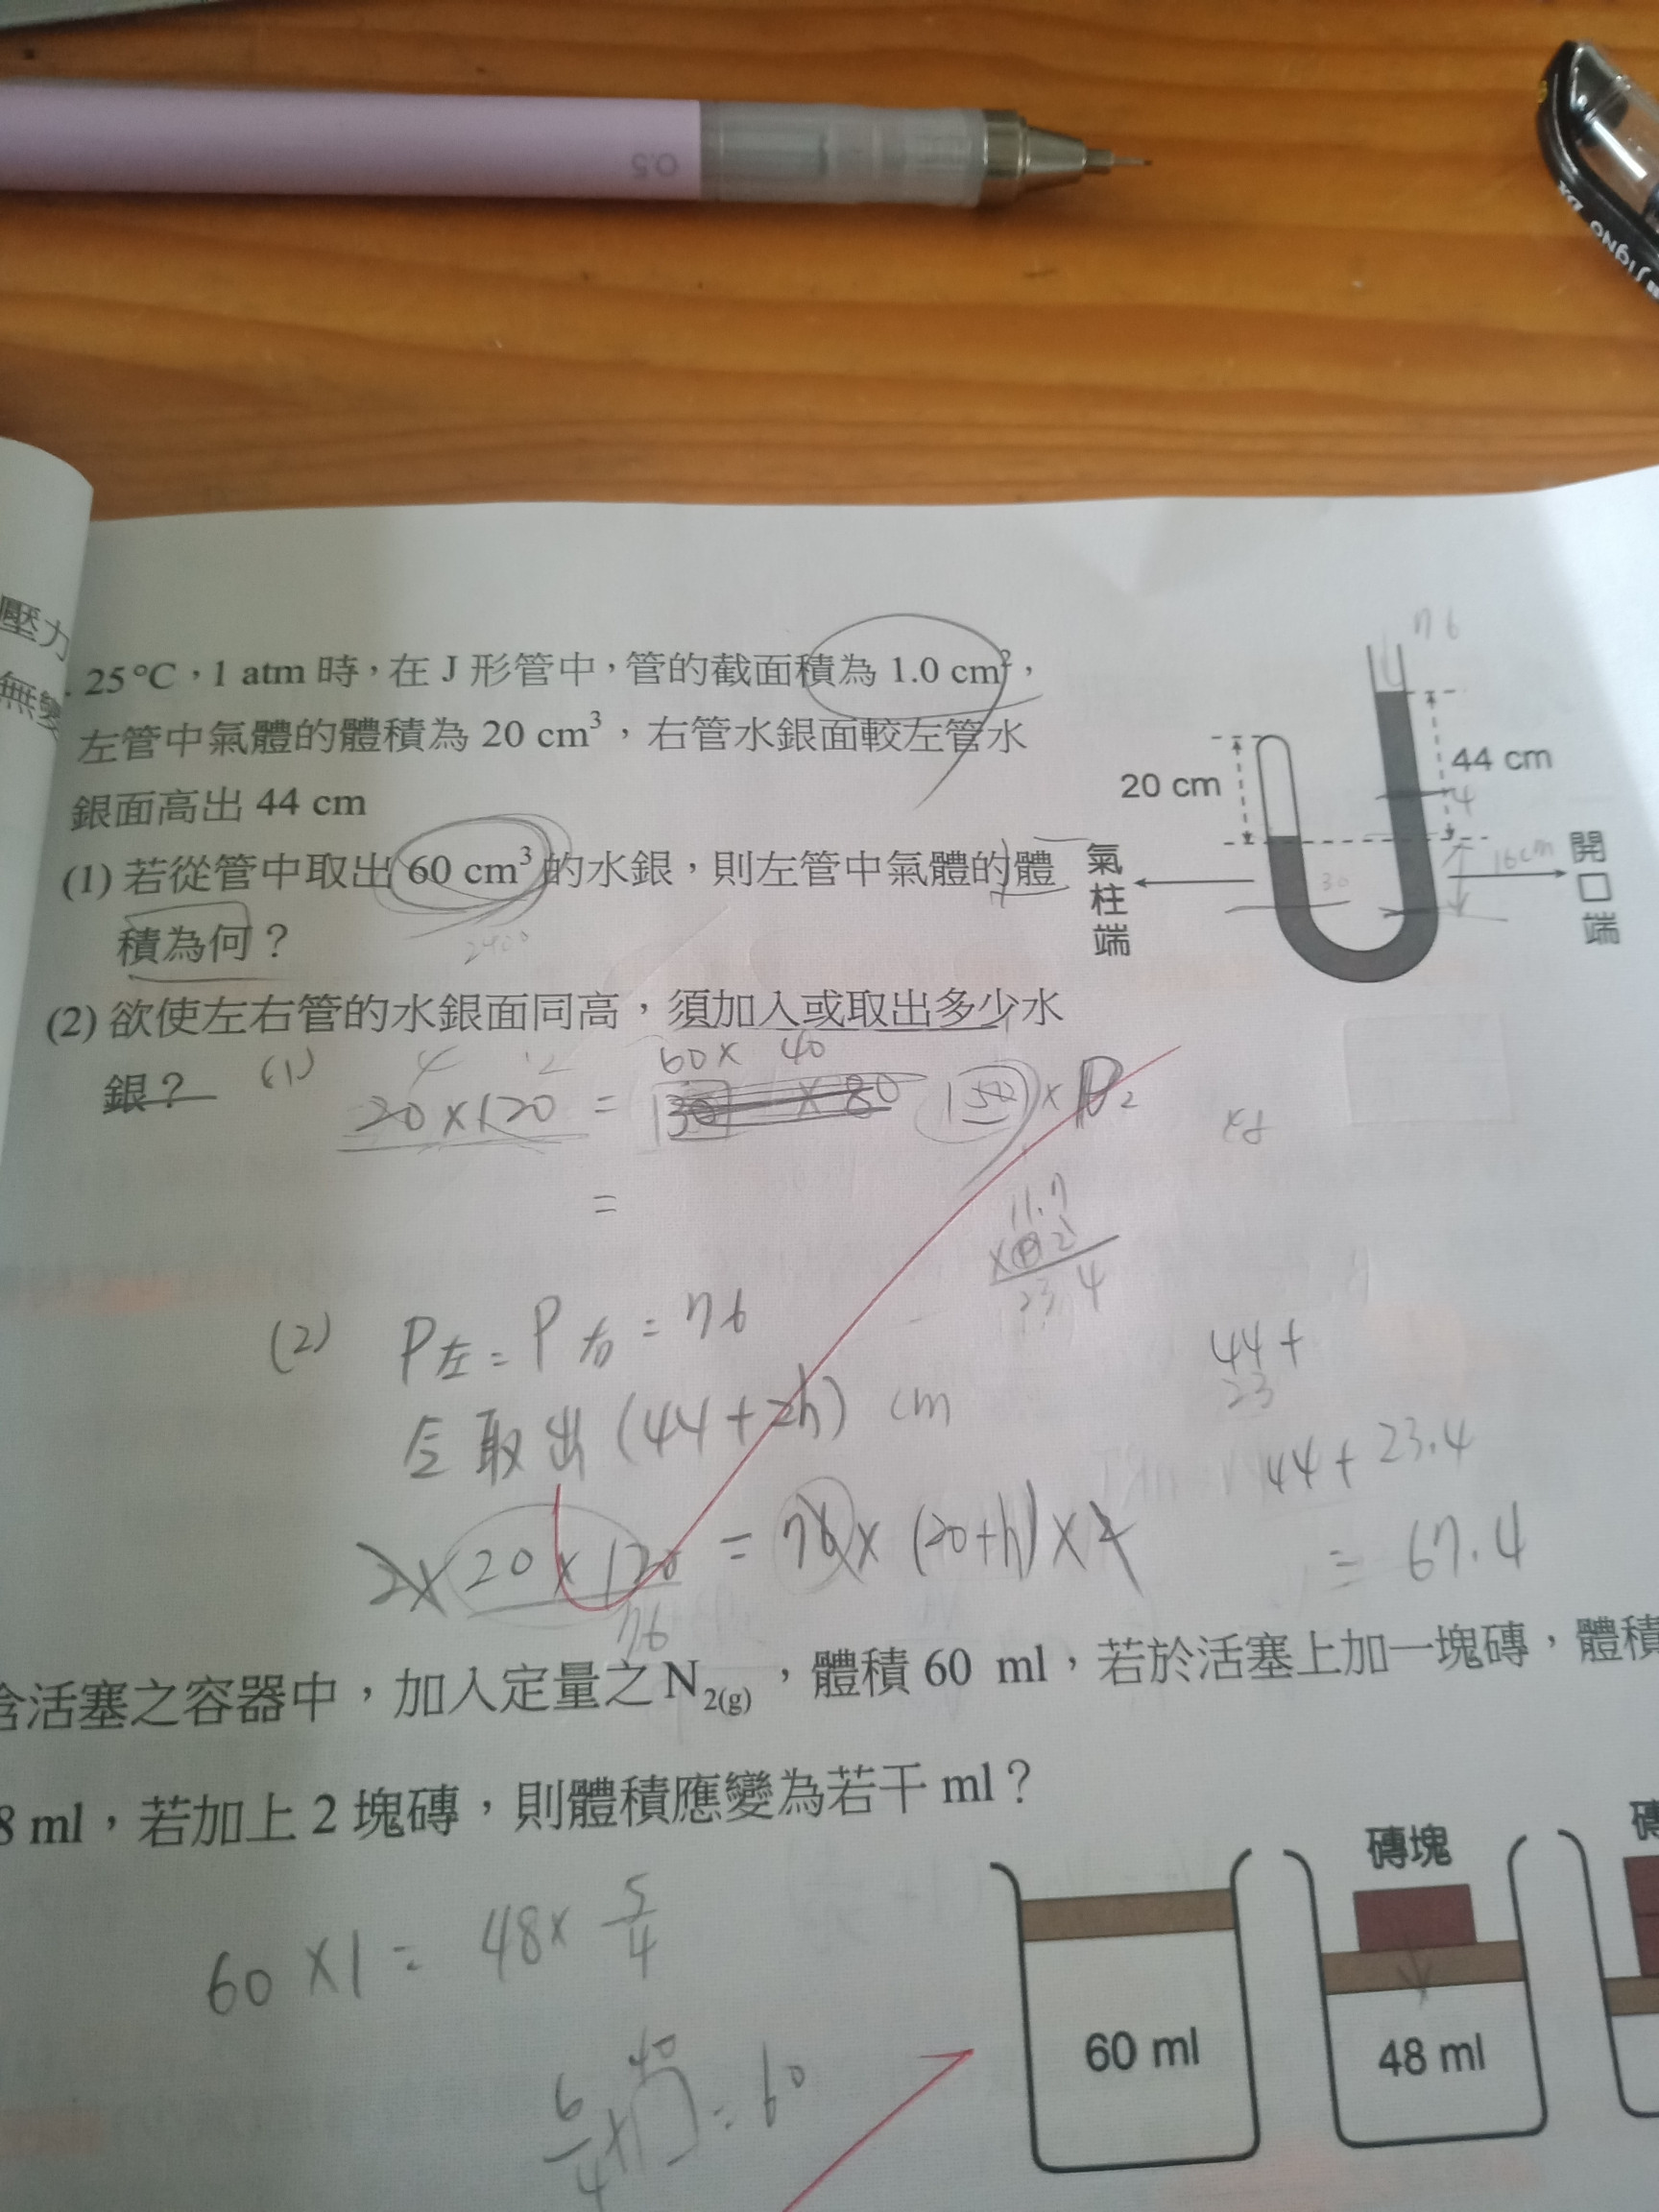 0.5
壓力
無
. 25℃,1 atm 時,在 J 形管中,管的截面積為 1.0 cm²,
左管中氣體的體積為 20 cm³,右管水銀面較左管水
銀面高出 44 cm
(1) 若從管中取出 60 cm³ 的水銀,則左管中氣體的體
積為何?
(2) 欲使左右管的水銀面同高,須加入或取出多少水
銀?
76
20 cm
44 cm
4
氣柱端
30
16cm
開口端
2400
(1)
60× 40
20×120 = 130 × 80 150 × P₂
=
11.7
× 2
23.4
(2) P左 = P右 = 76
令取出 (44+2h) cm
44+
23
44+23.4
= 67.4
2×20×120 = 76×(20+h)×2
76
含活塞之容器中,加入定量之N₂(g),體積 60 ml,若於活塞上加一塊磚,體積
8 ml,若加上 2 塊磚,則體積應變為若干 ml?
60×1 = 48× 5/4
6/4 × 40 = 60
磚塊
磚
60 ml
48 ml